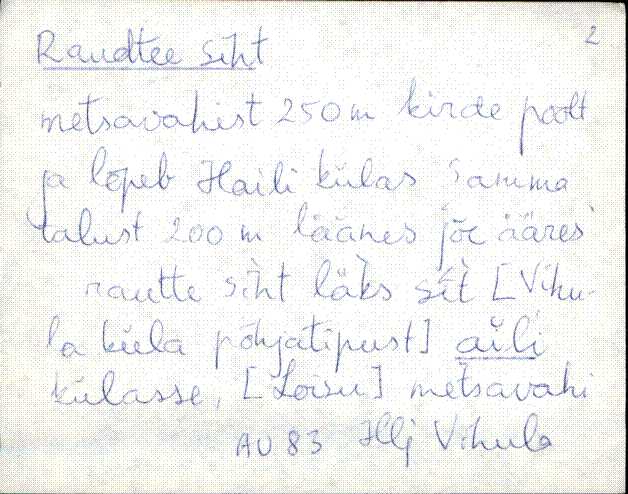 2
Raudtee siht
metsavahist 250 m kirde poolt
ja lõpeb Haili külas Samma
talust 200 m läänes jõe ääres
rautte sìht läks sìt [Vihu-
la küla põhjatipust] aìli
külasse, [Loisu] metsavahi
AU 83 Hlj Vihula